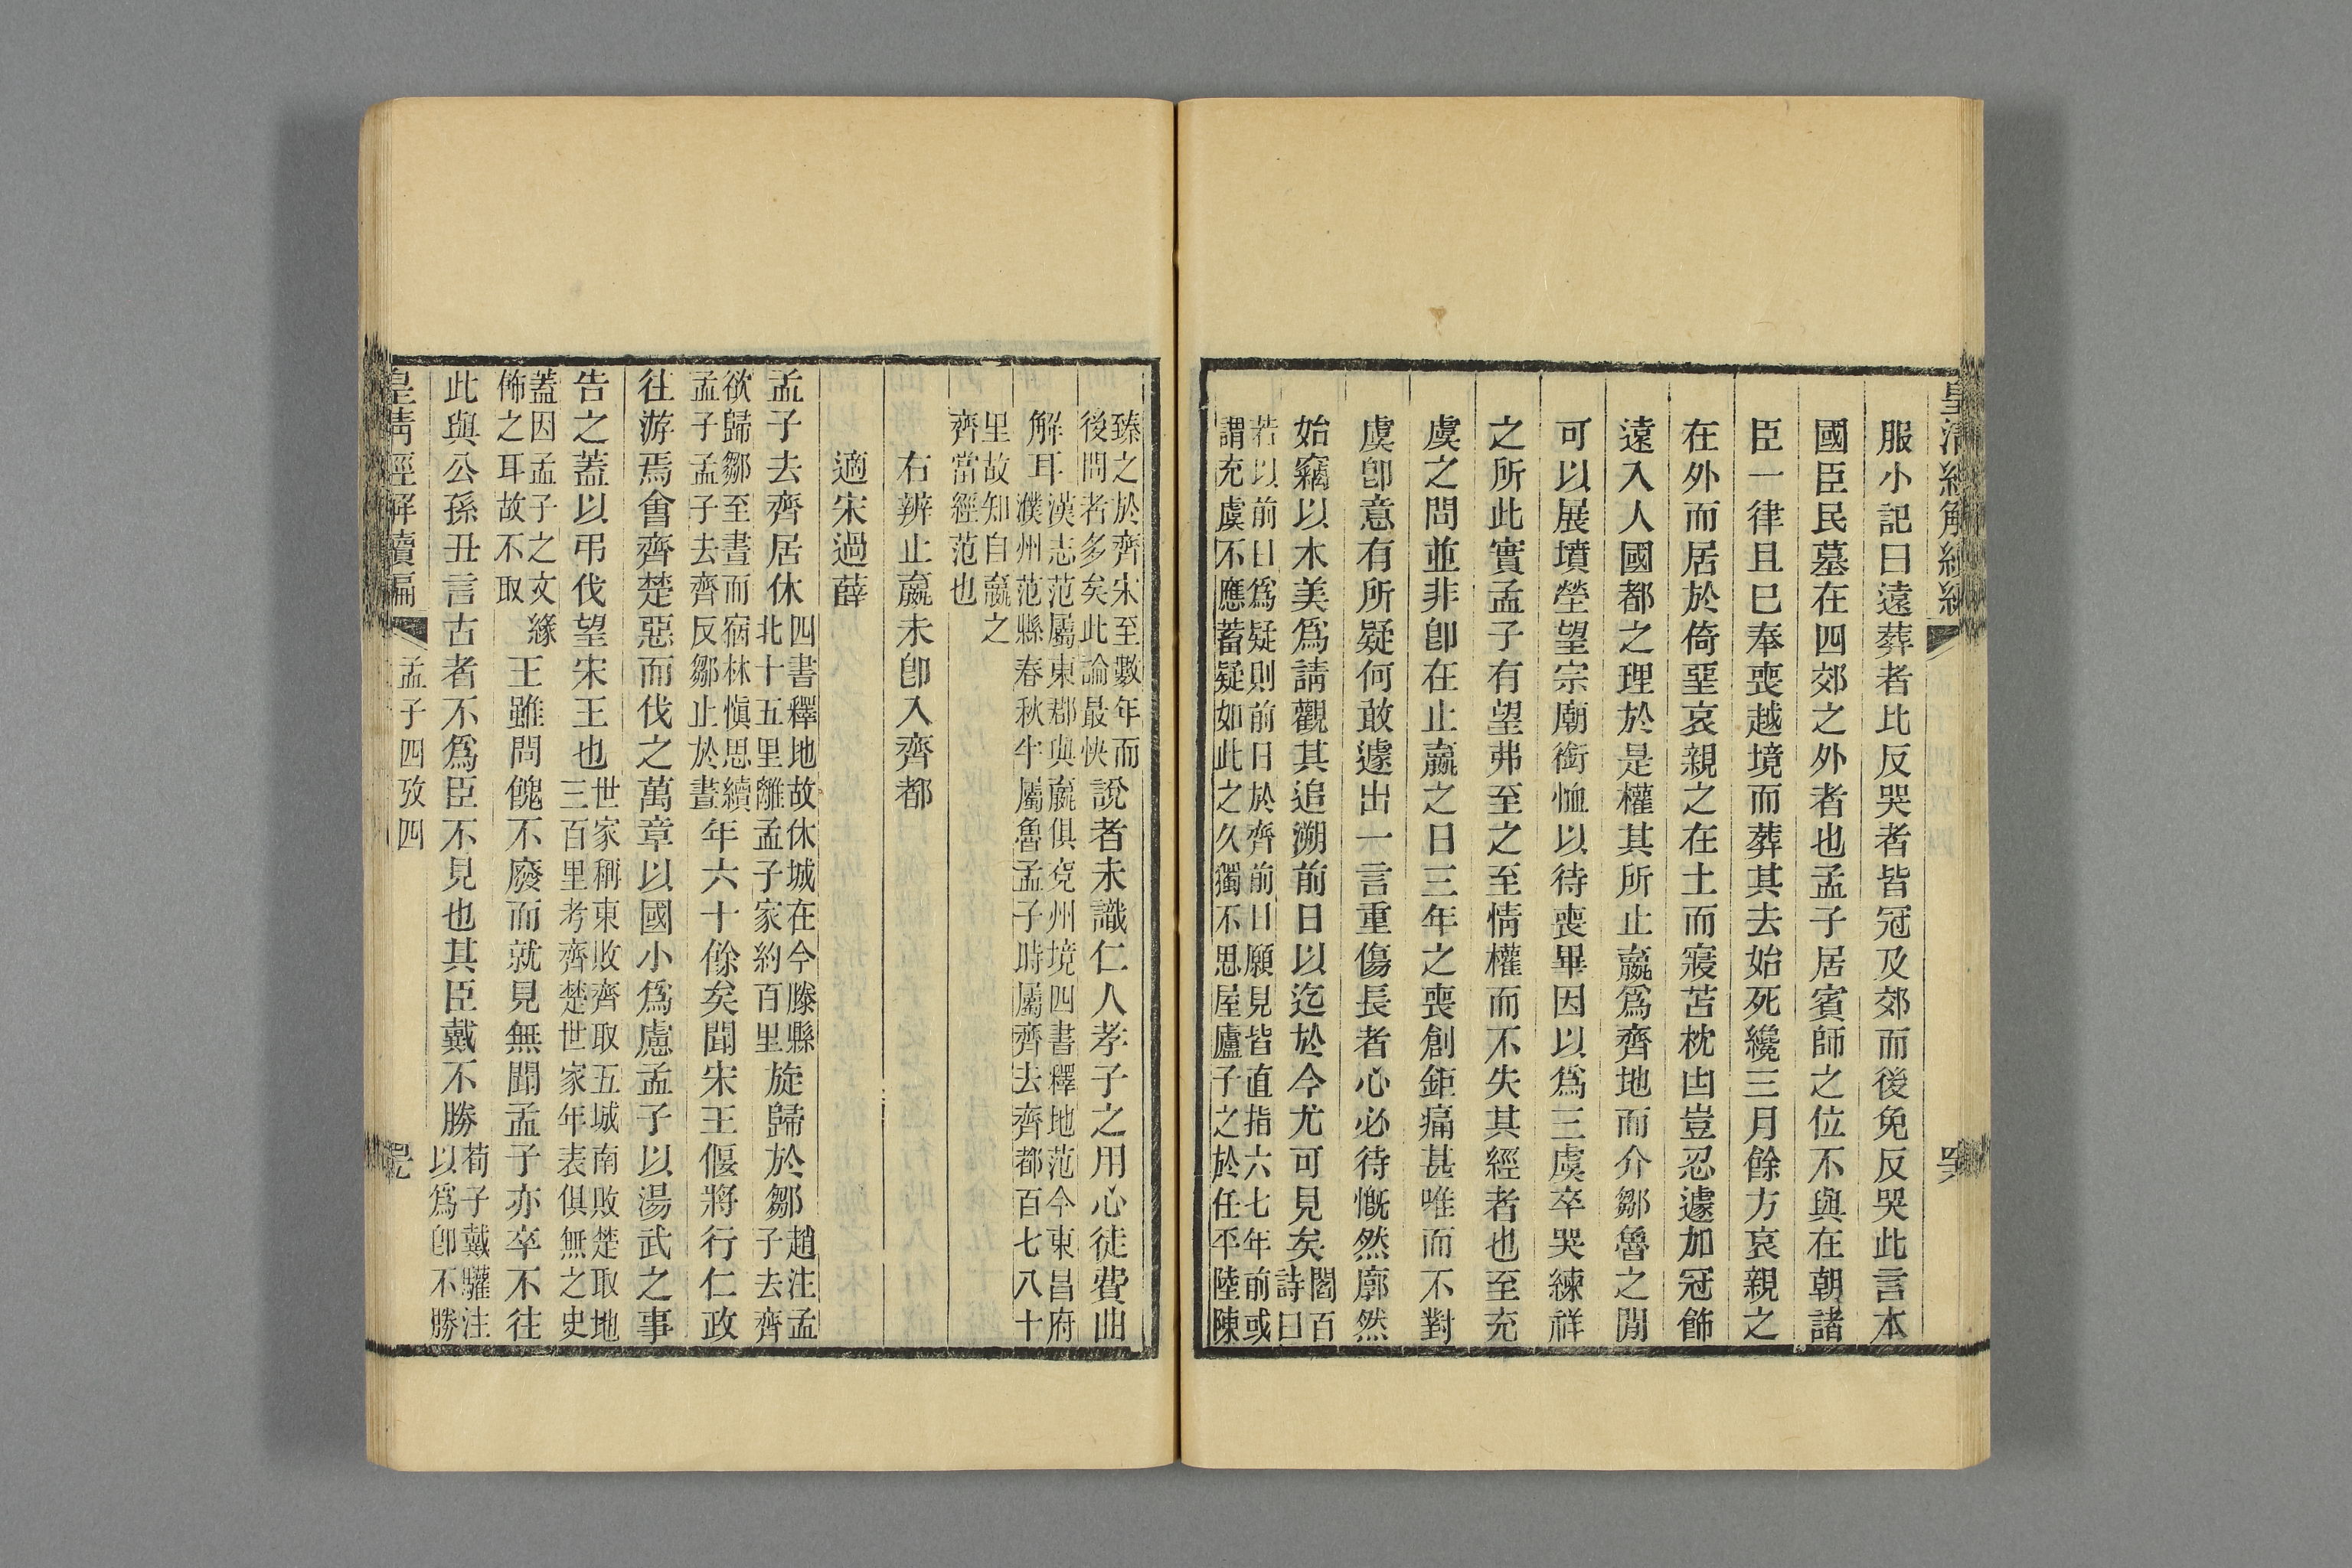 服小記曰遠葬者比反哭者皆冠及郊而後免反哭此言本
國臣民墓在四郊之外者也孟子居賓師之位不與在朝諸
臣一律且巳奉喪越境而葬其去始死纔三月餘方哀親之
在外而居於倚堊哀親之在土而寢苫枕凷豈忍遽加冠飾
遠入人國都之理於是權其所止嬴為齊地而介鄒魯之閒
可以展墳塋望宗廟銜恤以待喪畢因以為三虞卒哭練祥
之所此實孟子有望弗至之至情權而不失其經者也至充
虞之問並非卽在止嬴之日三年之喪創鉅痛甚唯而不對
虞卽意有所疑何敢遽出一言重傷長者心必待慨然廓然
始竊以木美為請觀其追溯前日以迄於今尤可見矣閻百詩曰
若以前日為疑則前日於齊前日願見皆直指六七年前或
謂充虞不應蓄疑如此之久獨不思屋廬子之於任平陸陳
臻之於齊宋至數年而
後問者多矣此論最快說者未識仁人孝子之用心徒費曲
解耳漢志范屬東郡與嬴俱兗州境四書釋地范今東昌府
濮州范縣春秋牛屬魯孟子時屬齊去齊都百七八十
里故知自嬴之
齊當經范也
右辨止嬴未卽入齊都
適宋過薛
孟子去齊居休四書釋地故休城在今滕縣
北十五里離孟子家約百里旋歸於鄒趙注孟
子去齊
欲歸鄒至晝而宿林愼思續
孟子孟子去齊反鄒止於晝年六十餘矣聞宋王偃將行仁政
往游焉會齊楚惡而伐之萬章以國小為慮孟子以湯武之事
告之蓋以弔伐望宋王也世家稱東敗齊取五城南敗楚取地
三百里考齊楚世家年表俱無之史
蓋因孟子之文緣
飾之耳故不取王雖問餽不廢而就見無聞孟子亦卒不往
此與公孫丑言古者不為臣不見也其臣戴不勝荀子戴驩注
以為卽不勝
皇清經解續編
孟子四攷四